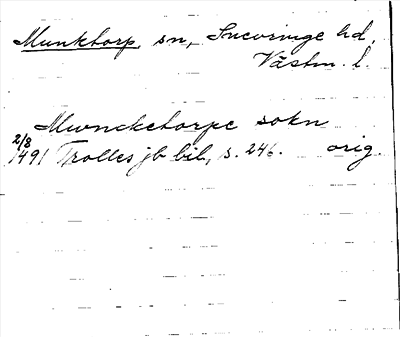 Munktorp sn, Snevringe hd.
Västm. l.
Mwncketorpe sokn
2/8 1491 Trolles jb bil, s. 246. orig.